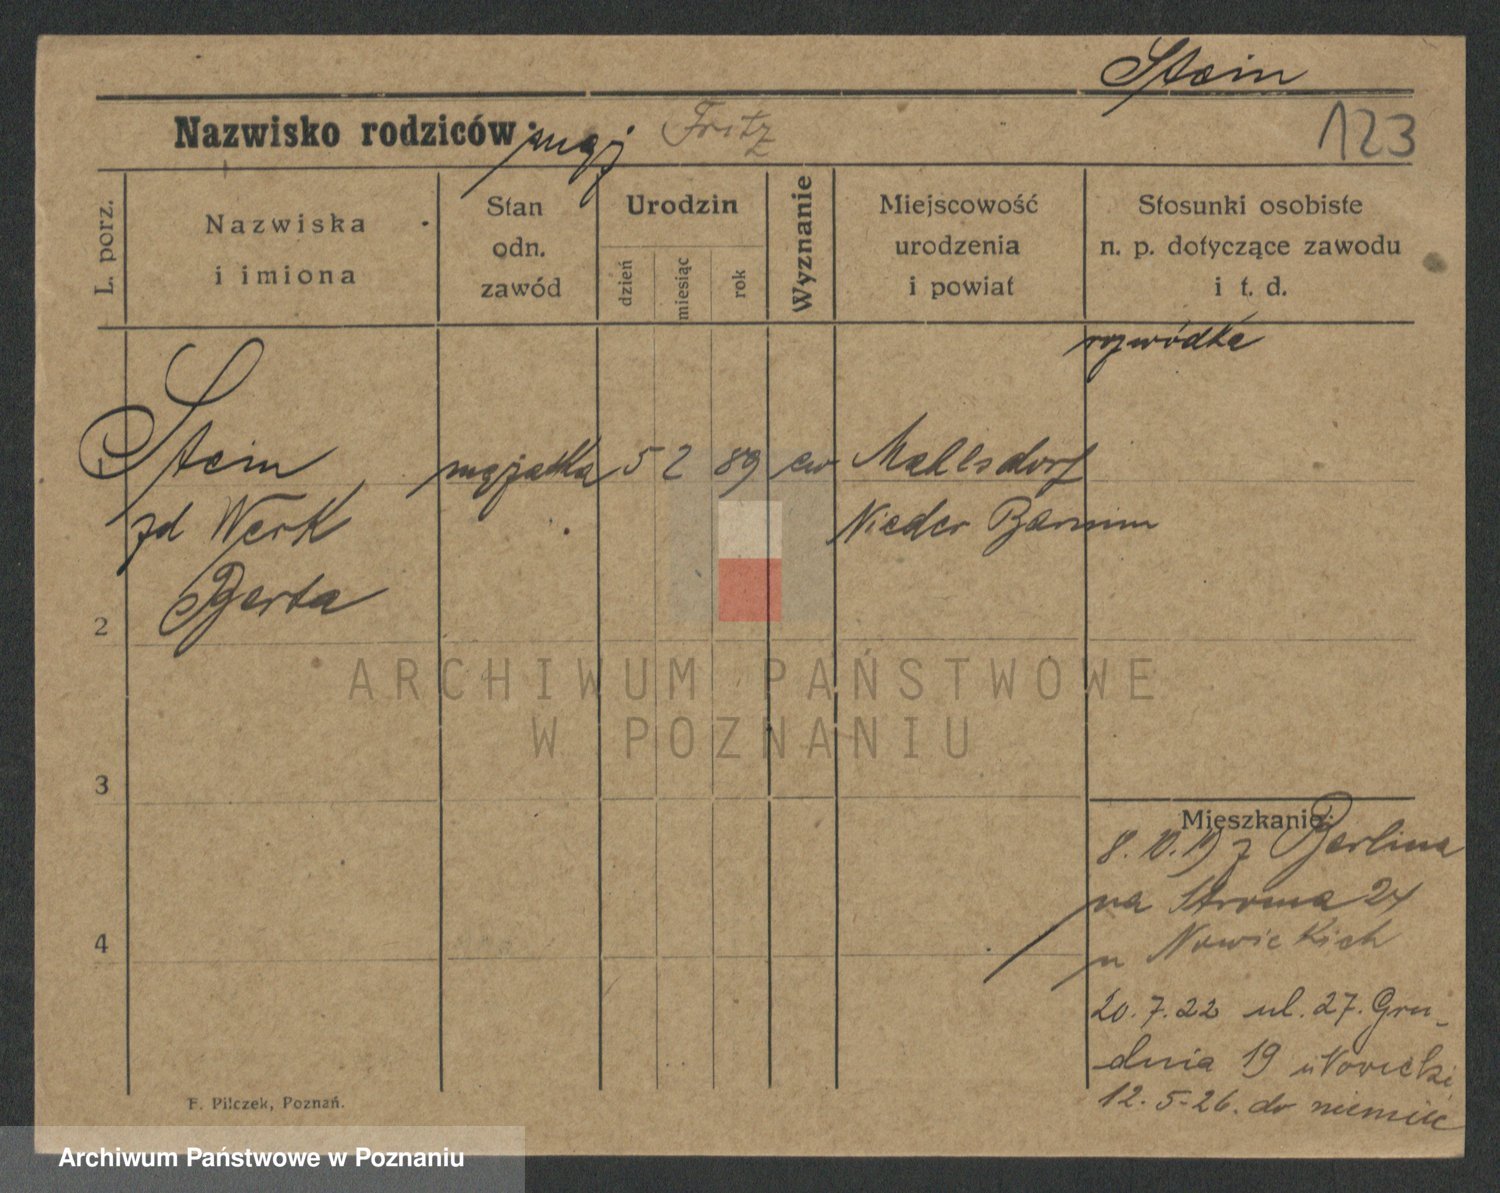 Stein
Nazwisko rodziców: mąż Fritz
123
L. porz.
Nazwiska
i imiona
Stan
odn.
zawód
Urodzin
dzień
miesiąc
rok
Wyznanie
Miejscowość
urodzenia
i powiat
Stosunki osobiste
n. p. dotyczące zawodu
i t. d.
rozwódka
1 Stein mężatka 5 2 89 ew Mahlsdorf
zd Werk Nieder Barnim
Berta
2
3
4
ARCHIWUM PAŃSTWOWE
W POZNANIU
Mieszkanie:
8.10.19 z Berlina
na Stroma 24
u Nowickich
20.7.22 ul. 27. Gru-
dnia 19 u Nowicki
12.5-26. do niemiec
F. Pilczek, Poznań.
Archiwum Państwowe w Poznaniu